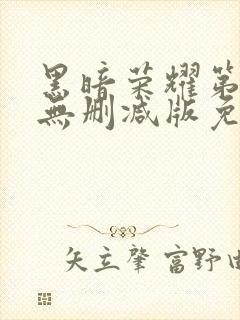 黑暗荣耀第
無删减版免
矢立肇 富野由